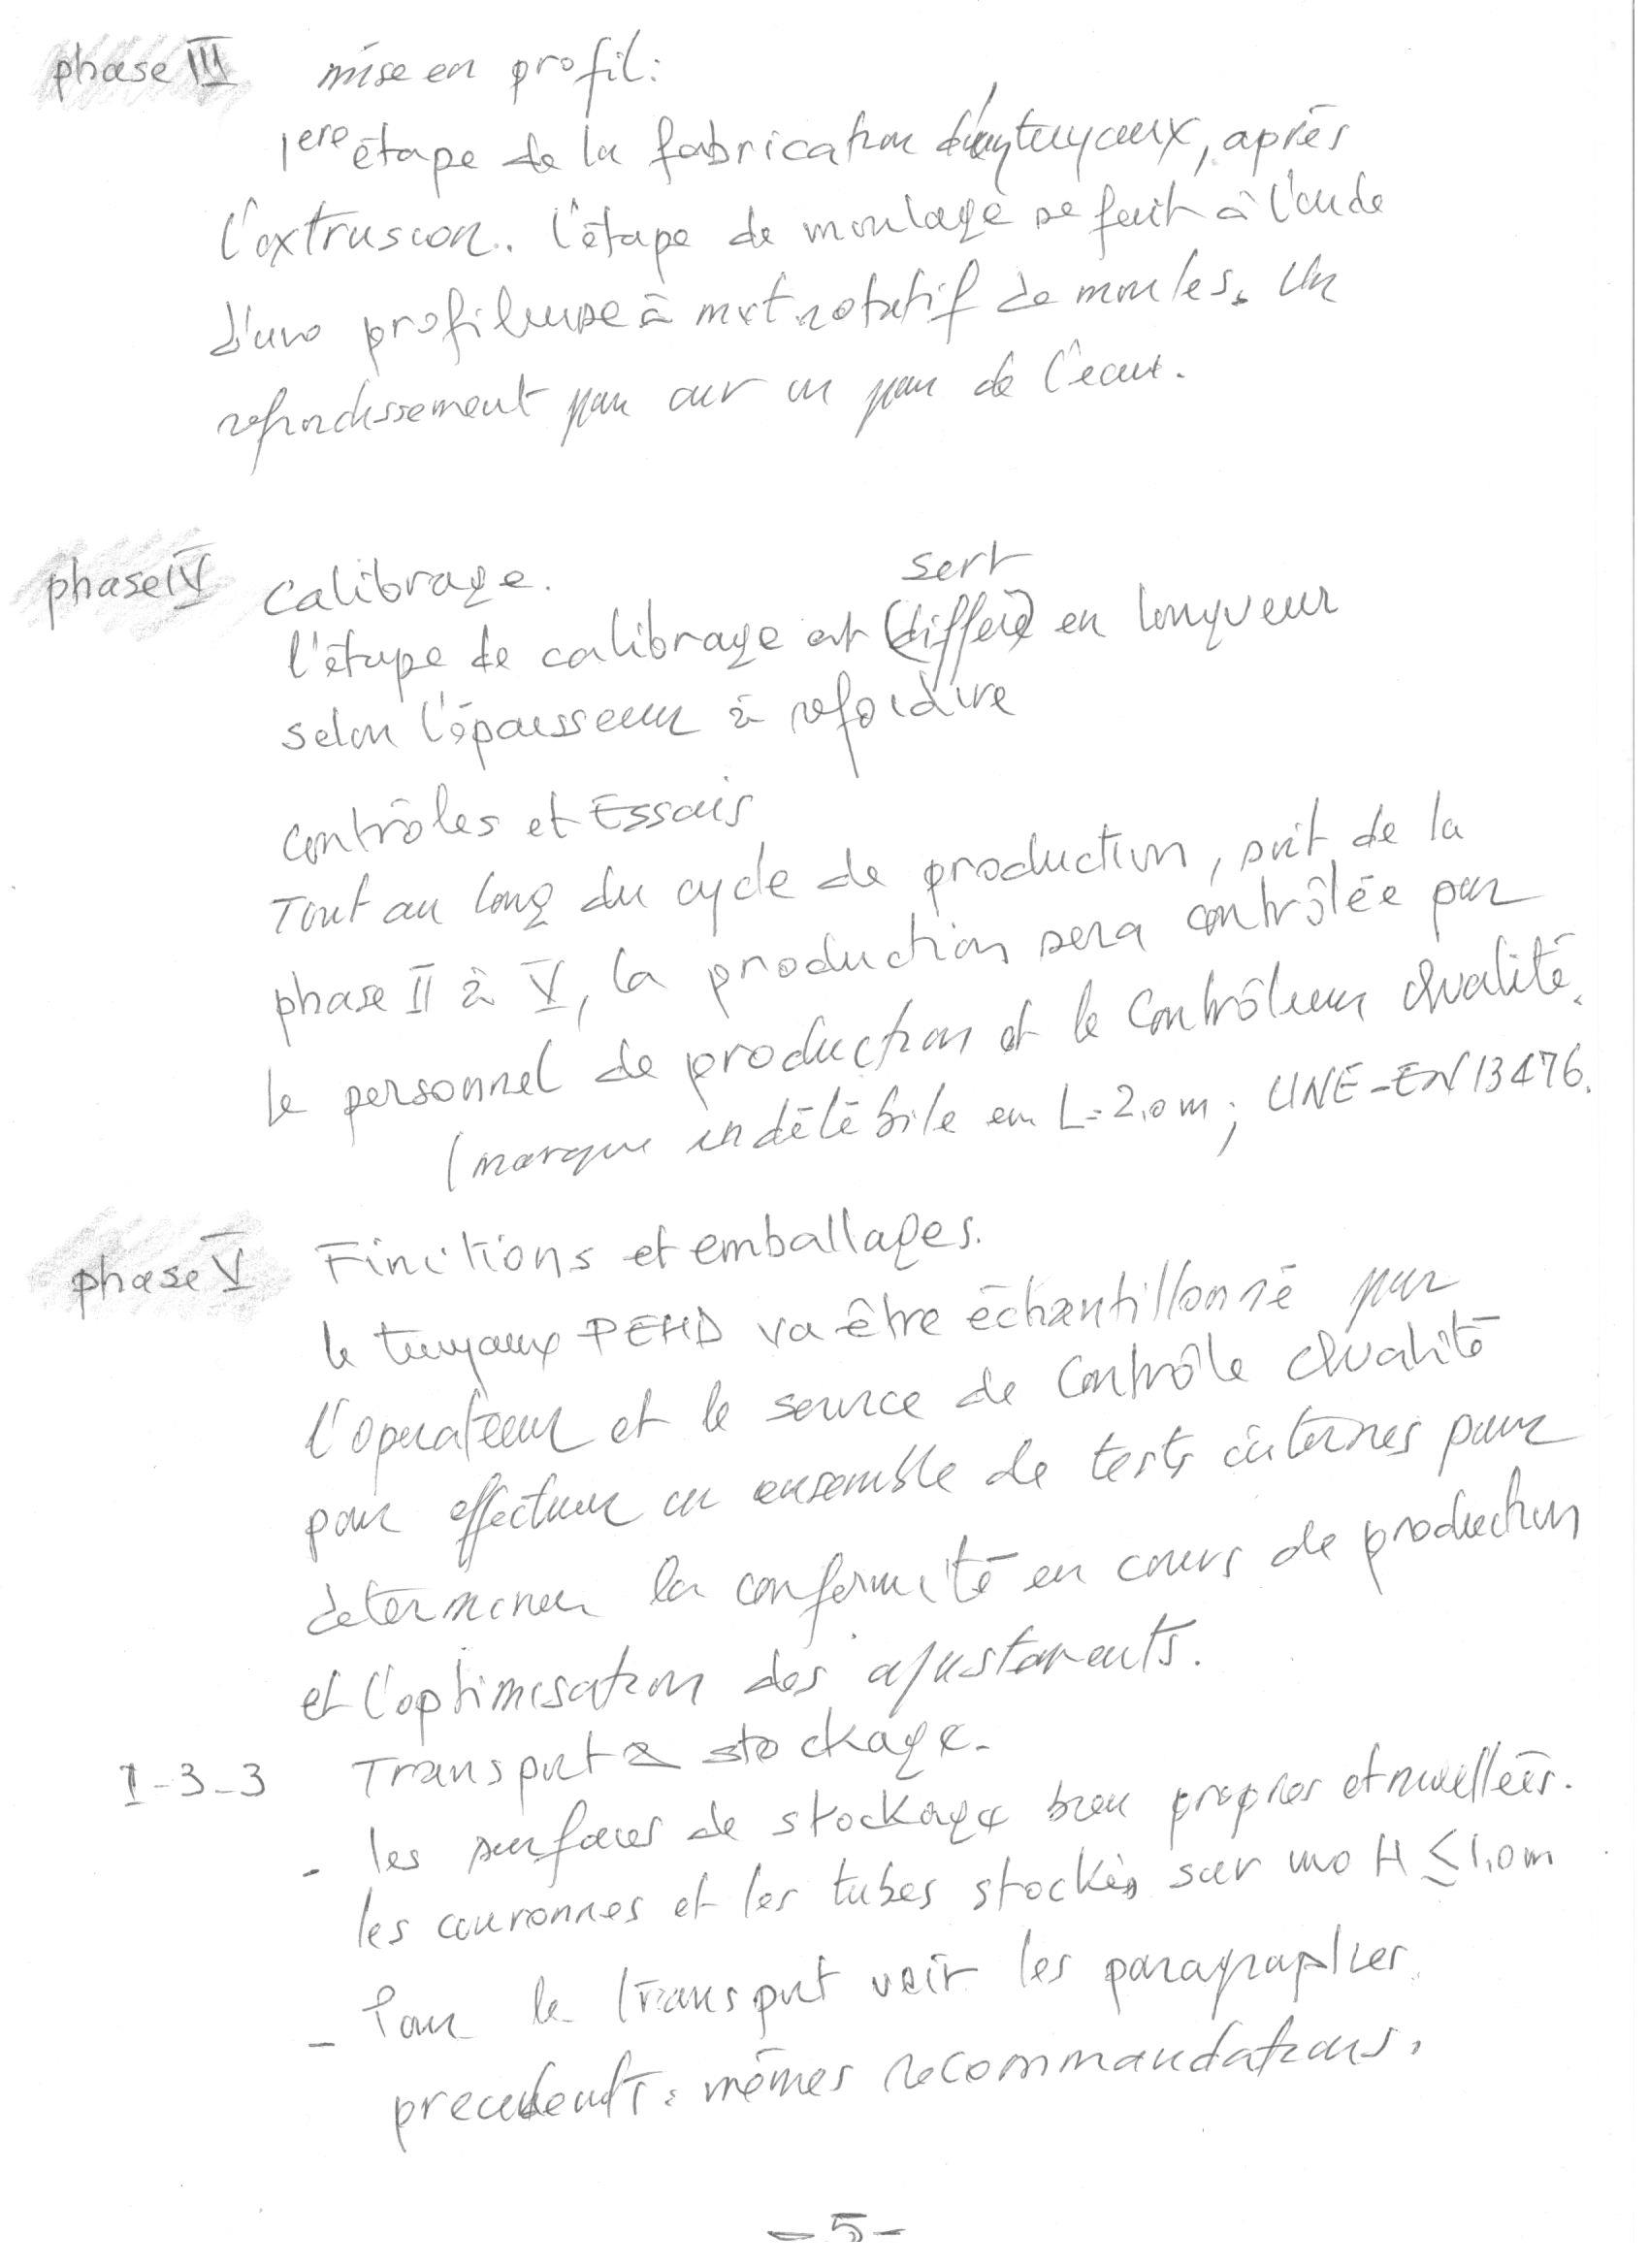 phase III mise en profil:
1ere étape de la fabrication tuyaux, après
l'extrusion. l'étape de moulage se fait à l'aide
d'une profileuse à mvt rotatif de moules. Un
refroidissement par air un peu de l'eau.
phase IV Calibrage.
sert
l'étape de calibrage et (differe) en longueur
selon l'épaisseur à refoidire
Contrôles et Essais
Tout au long du cycle de production, soit de la
phase II à V, la production sera contrôlée par
le personnel de production et le Contrôleur Qualité.
(marque indélébile en L=2,0m; UNE-EN 13476.
phase V Finitions et emballages.
le tuyaux PEHD va être échantillonné par
l'operateur et le service de Contrôle Qualité
pour effectuer un ensemble de tests internes pour
determiner la conformité en cours de production
et l'optimisation des ajustements.
I-3-3 Transport & stockage.
- les surfaces de stockage bien propres et nivellées.
les couronnes et les tubes stockés sur une H ≤ 1,0m
- Pour le transport voir les paragraphes
precedents: mêmes recommandations.
- 5 -